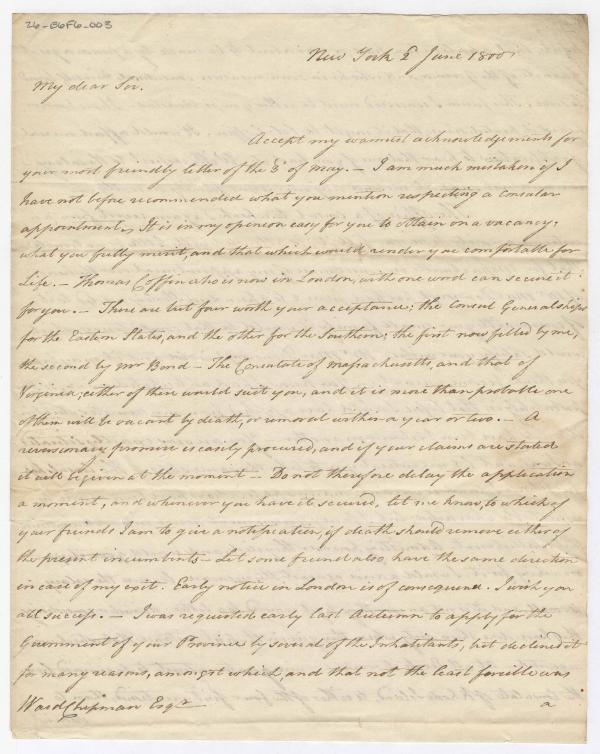 26-B6F6-003
New York 2 June 1800
My dear Sir.
Accept my warmest acknowledgements for
your most friendly letter of the 3d of May. — I am much mistaken if I
have not before recommended what you mention respecting a Consular
appointment. It is in my opinion easy for you to obtain on a vacancy,
what you fully merit, and that which would render you comfortable for
Life. — Thomas Coffin who is now in London, with one word can secure it
for you. — There are but four worth your acceptance; the Consul Generalships
for the Eastern States, and the other for the Southern; the first now filled by me,
the second by Mr Bond — The Consulate of Massachusetts, and that of
Virginia; either of these would suit you, and it is more than probable one
of them will be vacant by death, or removal within a year or two. — A
reversionary promise is easily procured, and if your claims are stated
it will be given at the moment — Do not therefore delay the application
a moment, and whenever you have it secured, let me know, to which of
your friends I am to give a notification, if death should remove either of
the present incumbents — Let some friend also have the same direction
in case of my exit. Early notice in London is of consequence. I wish you
all success. — I was requested early last Autumn to apply for the
Government of your Province by several of the Inhabitants, but declined it
for many reasons, amongst which, and that not the least forcible was
Ward Chipman Esqr
a